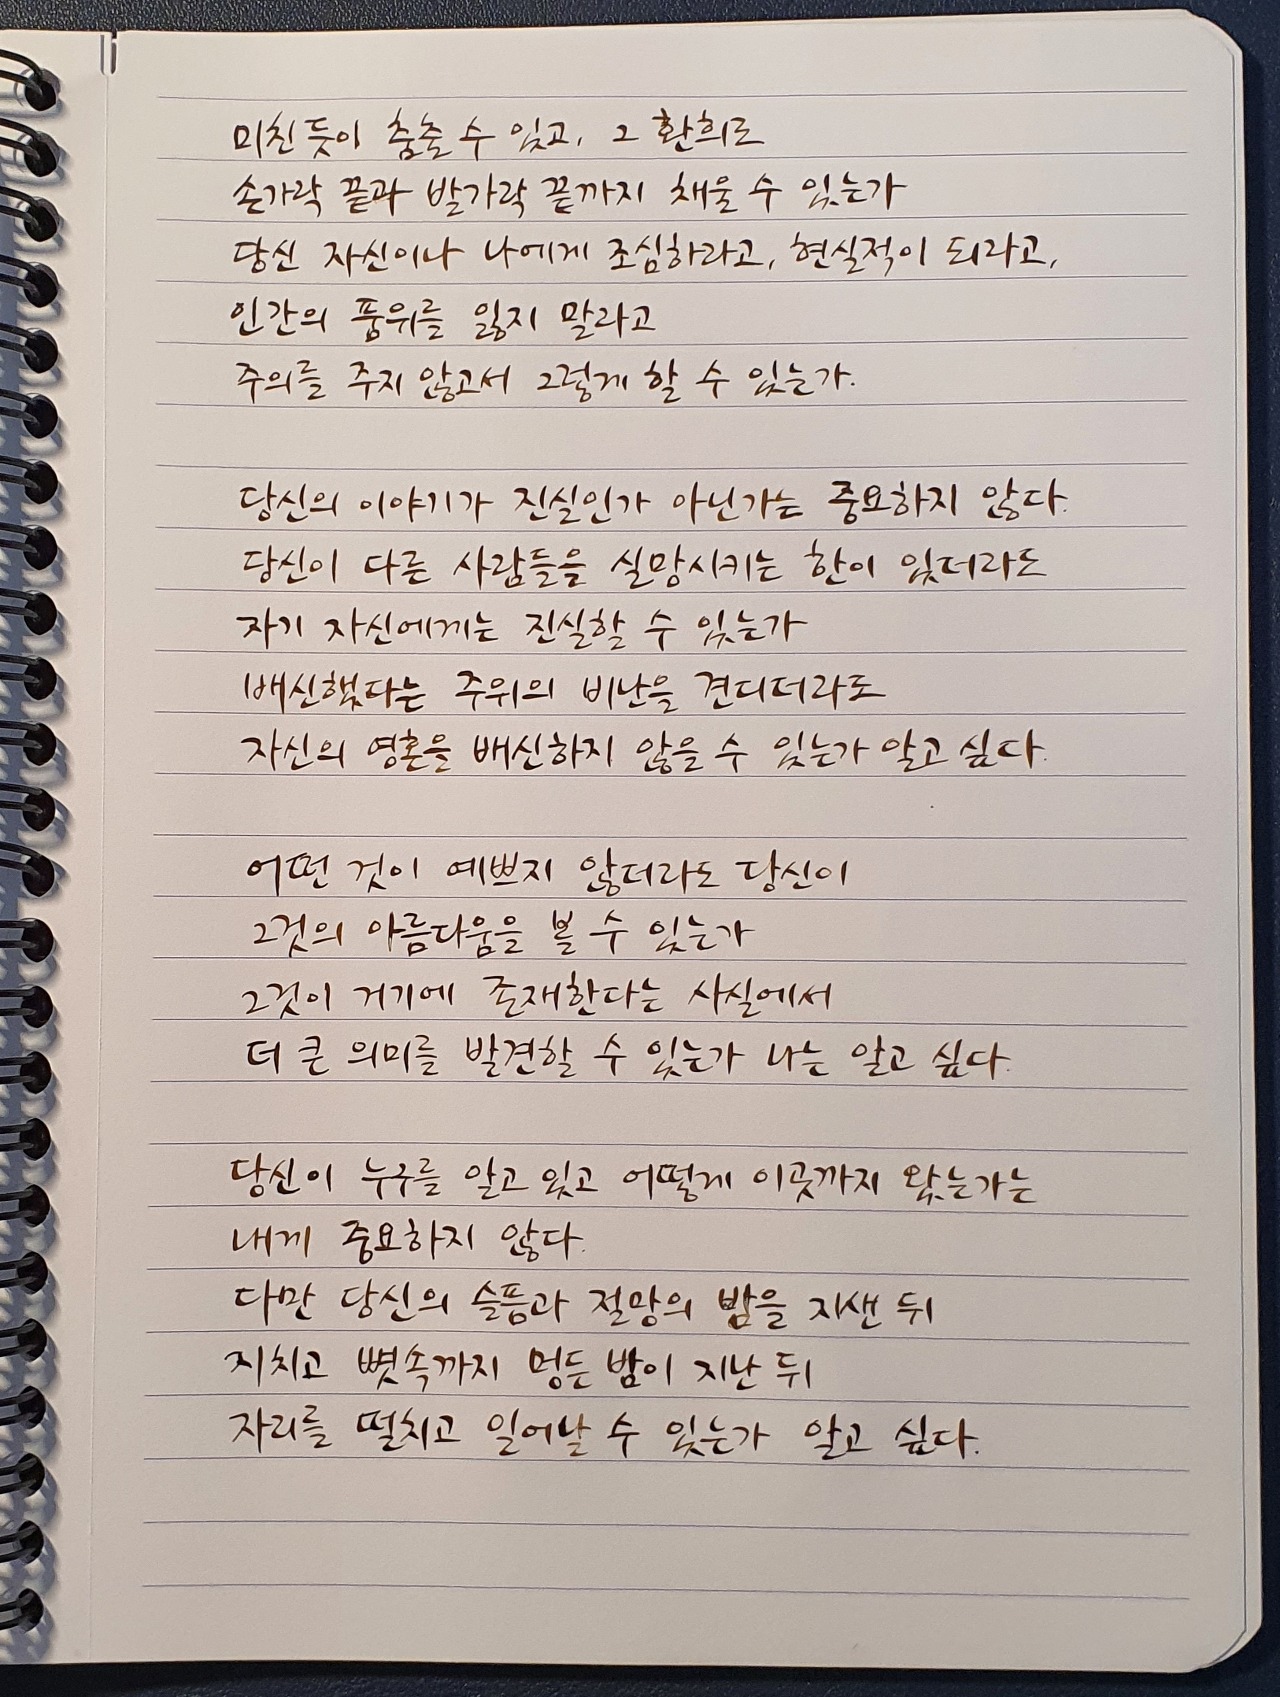 미친듯이 춤출 수 있고, 그 환희로
손가락 끝과 발가락 끝까지 채울 수 있는가
당신 자신이나 나에게 조심하라고, 현실적이 되라고,
인간의 품위를 잃지 말라고
주의를 주지 않고서 그렇게 할 수 있는가.
당신의 이야기가 진실인가 아닌가는 중요하지 않다.
당신이 다른 사람들을 실망시키는 한이 있더라도
자기 자신에게는 진실할 수 있는가
배신했다는 주위의 비난을 견디더라도
자신의 영혼을 배신하지 않을 수 있는가 알고 싶다.
어떤 것이 예쁘지 않더라도 당신이
그것의 아름다움을 볼 수 있는가
그것이 거기에 존재한다는 사실에서
더 큰 의미를 발견할 수 있는가 나는 알고 싶다.
당신이 누구를 알고 있고 어떻게 이곳까지 왔는가는
내게 중요하지 않다.
다만 당신의 슬픔과 절망의 밤을 지샌 뒤
지치고 뼛속까지 멍든 밤이 지난 뒤
자리를 떨치고 일어날 수 있는가 알고 싶다.